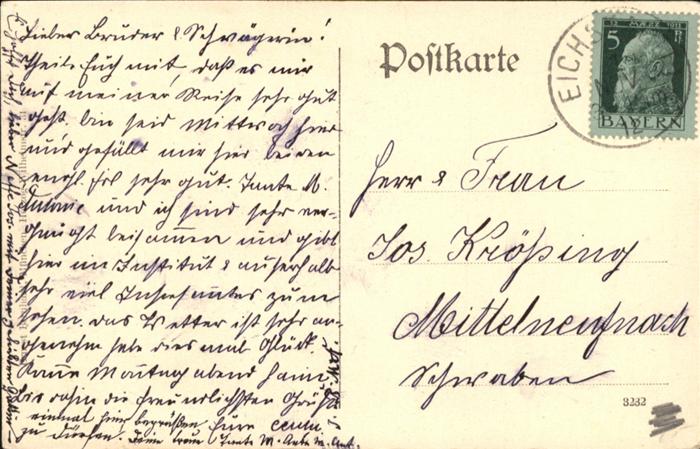 Lieber Bruder & Schwägerin!
Theile Euch mit, daß es mir
auf meiner Reise sehr gut
geht. bin seid Mittwoch hier
und gefällt mir hier bei den
engl. Frl sehr gut. Tante M.
Antonie und ich sind sehr ver-
gnügt beisammen und gibt
hier im Institut & außerhalb
sehr viel Interessantes zum
sehen. das Wetter ist sehr an-
genehm habe dies mal Glück.
Komme Montag abend heim,
bis dahin die freundlichsten Grüße
Eure
einmal hier begrüßen
zu dürfen. Tante M.
Postkarte
12. MÄRZ 1911
5 Pf
BAYERN
EICHS
Herr & Frau
Jos. Krößing
Mittelneufnach
Schwaben
3232